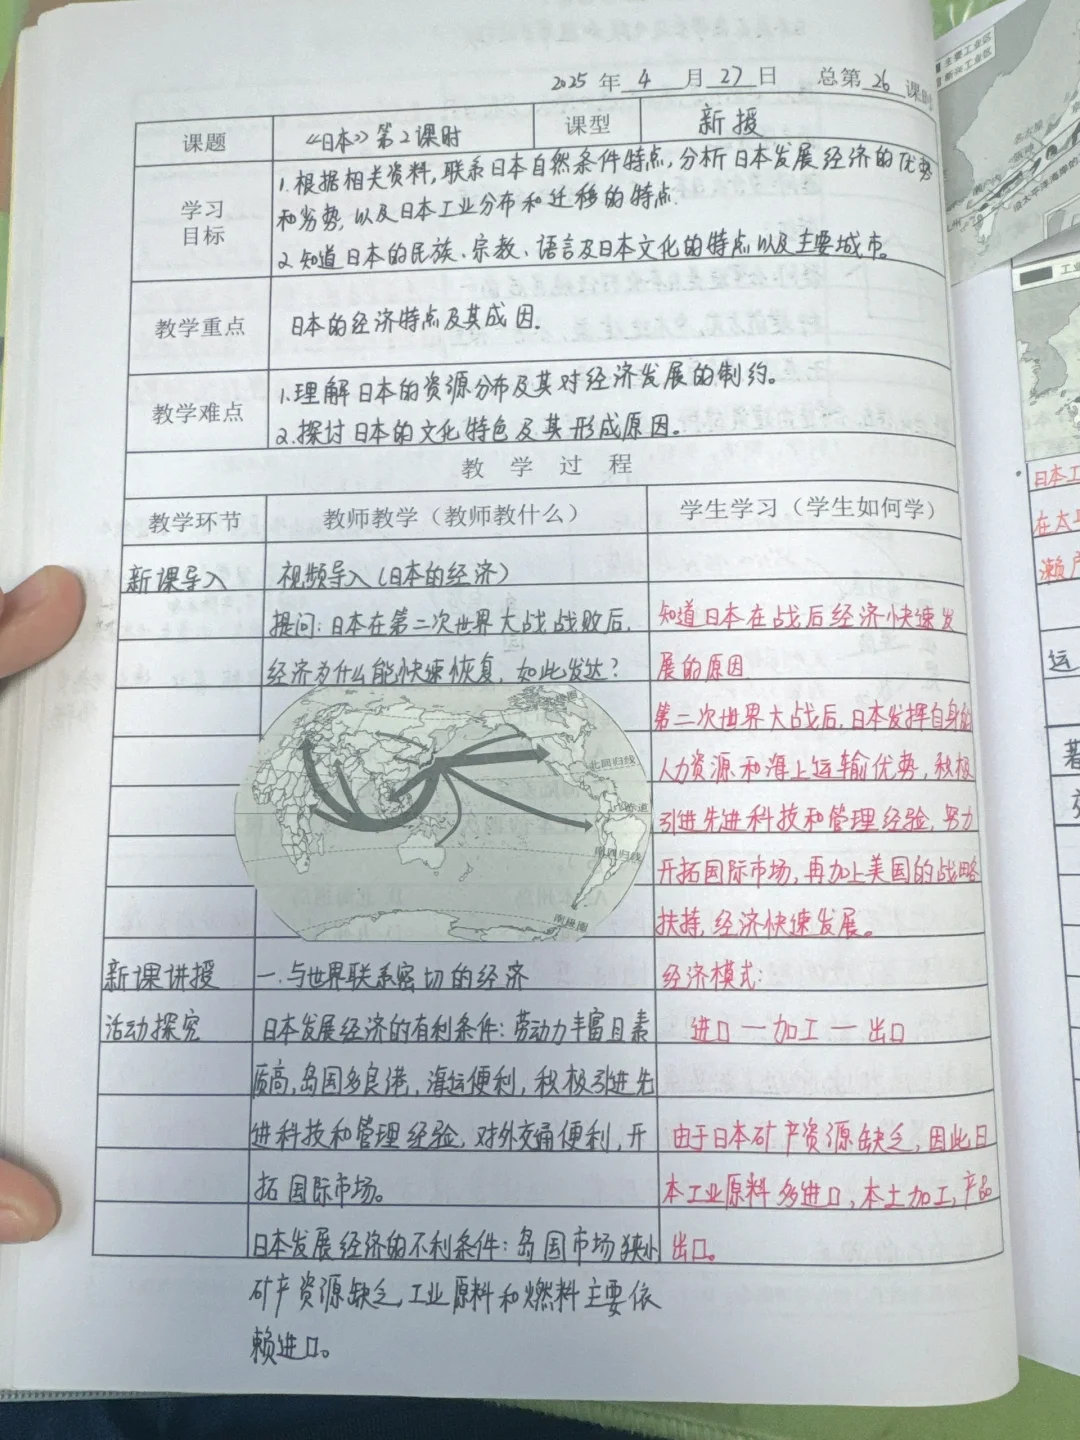 2025 年 4 月 27 日 总第 26 课时
课题 《日本》第2课时 课型 新授
学习目标
1.根据相关资料,联系日本自然条件特点,分析日本发展经济的优势
和劣势,以及日本工业分布和迁移的特点.
2.知道日本的民族、宗教、语言及日本文化的特点以及主要城市。
教学重点 日本的经济特点及其成因.
教学难点
1.理解日本的资源分布及其对经济发展的制约。
2.探讨日本的文化特色及其形成原因。
教 学 过 程
教学环节 教师教学（教师教什么） 学生学习（学生如何学）
新课导入 视频导入(日本的经济)
提问:日本在第二次世界大战战败后,
经济为什么能快速恢复,如此发达?
知道日本在战后经济快速发
展的原因
第二次世界大战后,日本发挥自身的
人力资源和海上运输优势,积极
引进先进科技和管理经验,努力
开拓国际市场,再加上美国的战略
扶持,经济快速发展。
北极圈
北回归线
赤道
南回归线
南极圈
新课讲授
活动探究
一.与世界联系密切的经济
日本发展经济的有利条件:劳动力丰富且素
质高,岛国多良港,海运便利,积极引进先
进科技和管理经验,对外交通便利,开
拓国际市场。
日本发展经济的不利条件:岛国市场狭小
矿产资源缺乏,工业原料和燃料主要依
赖进口。
经济模式:
进口一加工一出口
由于日本矿产资源缺乏,因此日
本工业原料多进口,本土加工,产品
出口。
主要工业区
新兴工业区
工业
日本工
在太
濑户
运